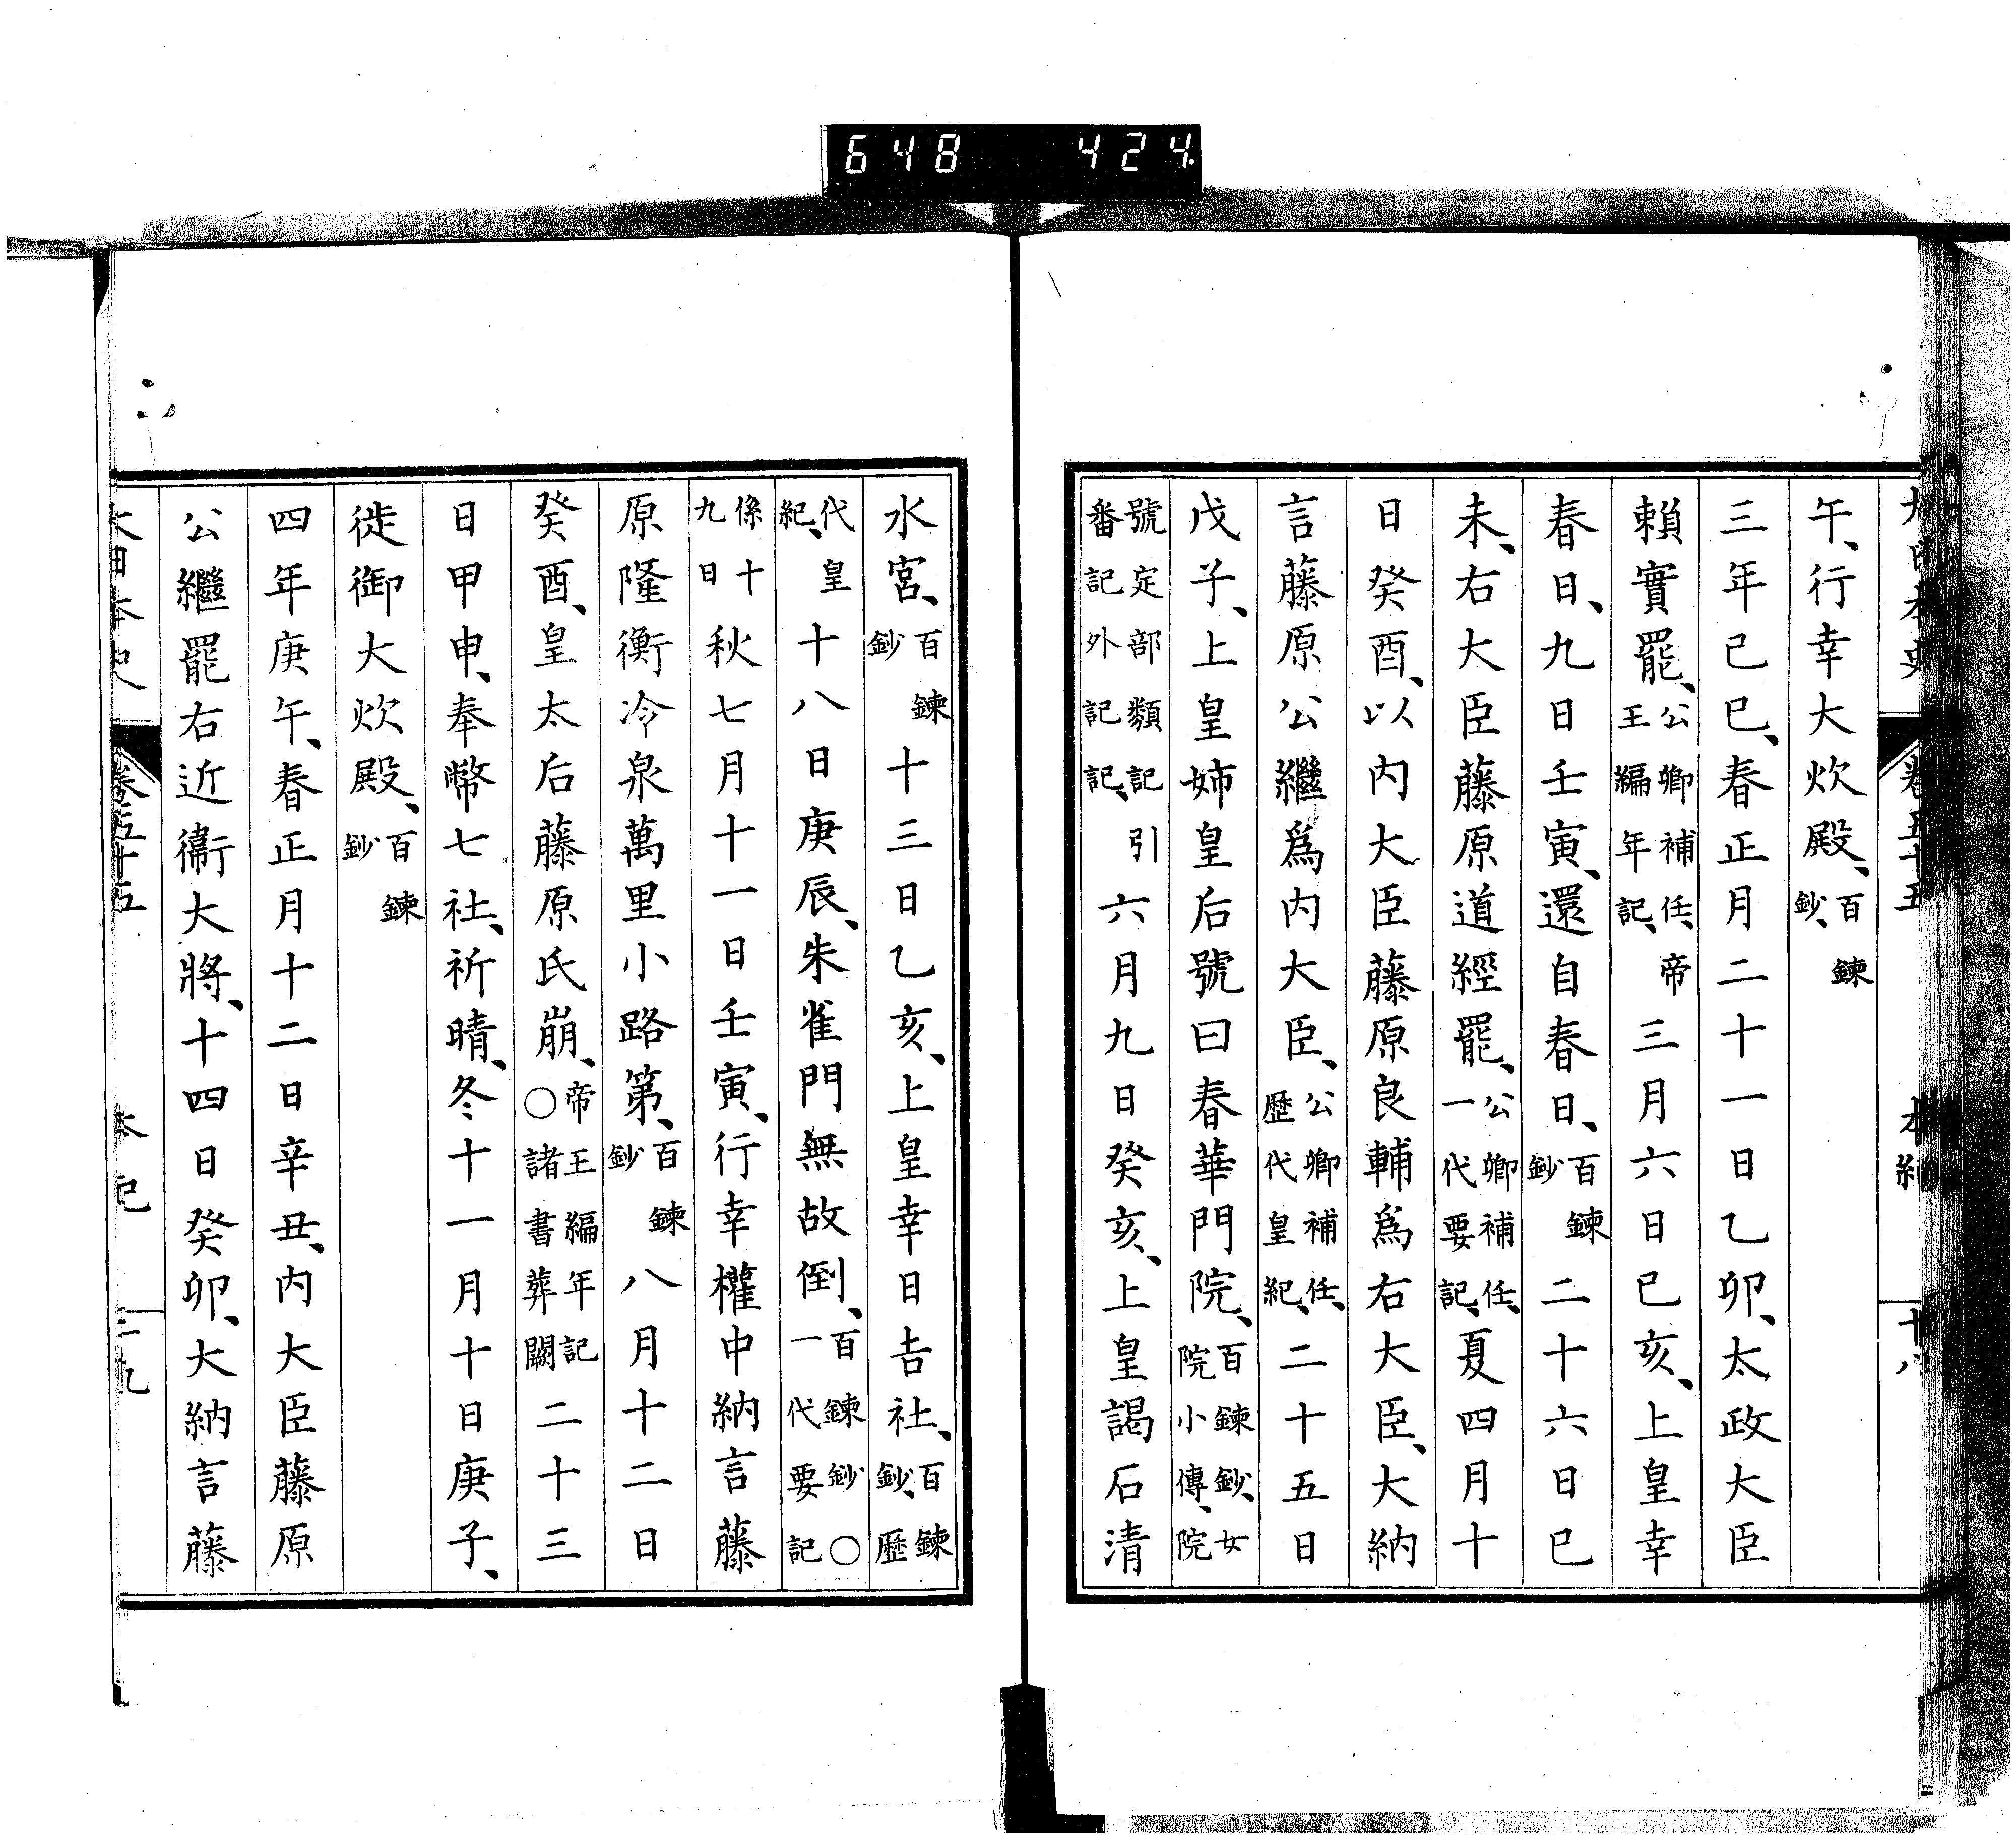 648 424
大日本史 卷五十五 本紀 十八
午、行幸大炊殿、百鍊鈔、
三年己巳、春正月二十一日乙卯、太政大臣
賴實罷、公卿補任、帝王編年記、三月六日己亥、上皇幸
春日、九日壬寅、還自春日、百鍊鈔二十六日己
未、右大臣藤原道經罷、公卿補任、一代要記、夏四月十
日癸酉、以內大臣藤原良輔爲右大臣、大納
言藤原公繼爲內大臣、公卿補任、歷代皇紀、二十五日
戊子、上皇姉皇后號曰春華門院、百鍊鈔、女院小傳、院
號定部類記引番記外記記、六月九日癸亥、上皇謁石清
水宮、百鍊鈔十三日乙亥、上皇幸日吉社、百鍊鈔、歷
代皇紀、十八日庚辰、朱雀門無故倒、百鍊鈔○一代要記
係十九日秋七月十一日壬寅、行幸權中納言藤
原隆衡冷泉萬里小路第、百鍊鈔八月十二日
癸酉、皇太后藤原氏崩、帝王編年記○諸書葬闕二十三
日甲申、奉幣七社、祈晴、冬十一月十日庚子、
徙御大炊殿、百鍊鈔
四年庚午、春正月十二日辛丑、內大臣藤原
公繼罷右近衞大將、十四日癸卯、大納言藤
大日本史 卷五十五 本紀 十九